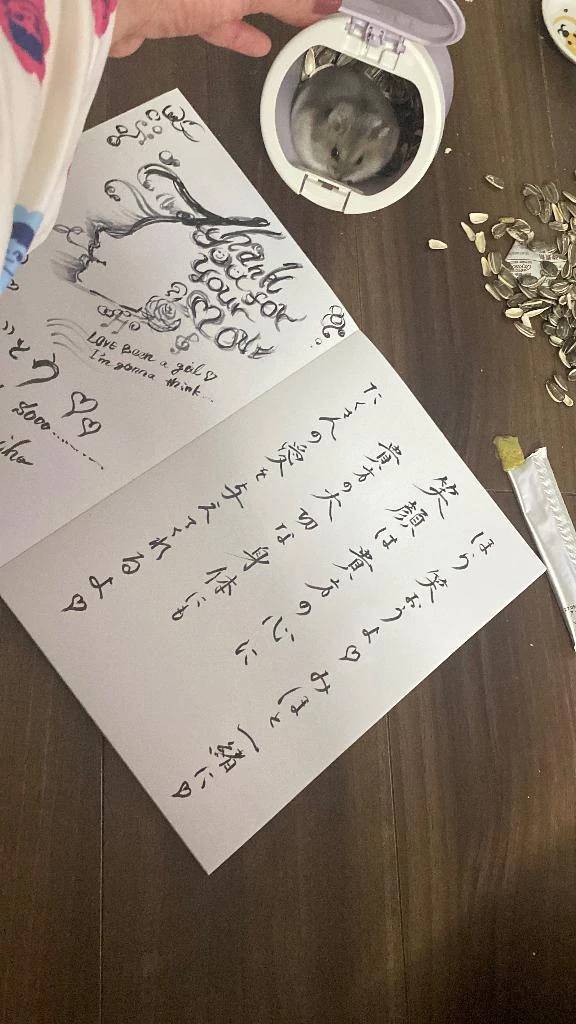 Thank
you for
your
LOVE Been a girl ♡
I'm gonna think...
とう ♡♡
Sooo........
ほら 笑おうよ♡ みほと 一緒に♡
笑顔は 貴方の心に
貴方の大切な身体にも
たくさんの愛を与えてくれるよ♡